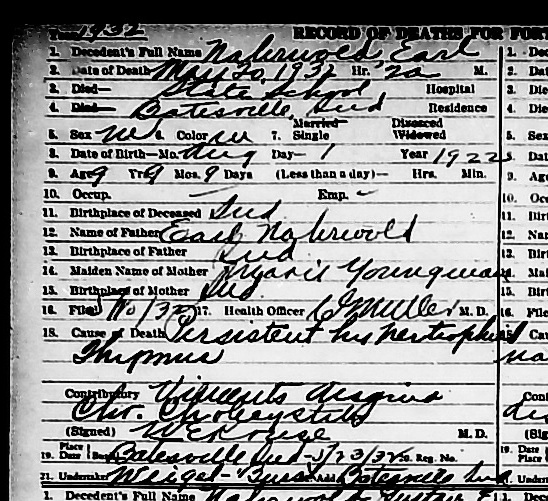 Year 1932 RECORD OF DEATHS FOR FORT
1. Decedent's Full Name Nahrwold, Earl
2. Date of Death May 20, 1932 Hr. 2a M.
3. Died— State School Hospital
4. Died— Batesville, Ind Residence
5. Sex M 6. Color W 7. Married— Single Divorced Widowed
8. Date of Birth—Mo. Aug Day— 1 Year 1922
9. Age 9 Yrs 9 Mos. 9 Days (Less than a day)— Hrs. Min.
10. Occup. Emp.
11. Birthplace of Deceased Ind
12. Name of Father Earl Nahrwold
13. Birthplace of Father Ind
14. Maiden Name of Mother Youngman
15. Birthplace of Mother Ind
16. Filed 17. Health Officer Muller M. D.
18. Cause of Death Persistent hypertrophied
Thymus
Contributory Vincents Angina
Chr. Cholecystitis
(Signed) W E Kruse M. D.
19. Place Date Batesville Ind - 5/23/32 20. Reg. No.
21. Undertaker Weigel - Add Batesville Ind
1. Decedent's Full Name
1. Dec
2. Dat
3. Die
4. Die
5. Sex
8. Dat
9. Ag
10. Oc
11. Birt
12. Nar
13. Birt
15. Birt
16. File
Cont
(Sig
19. Place Date